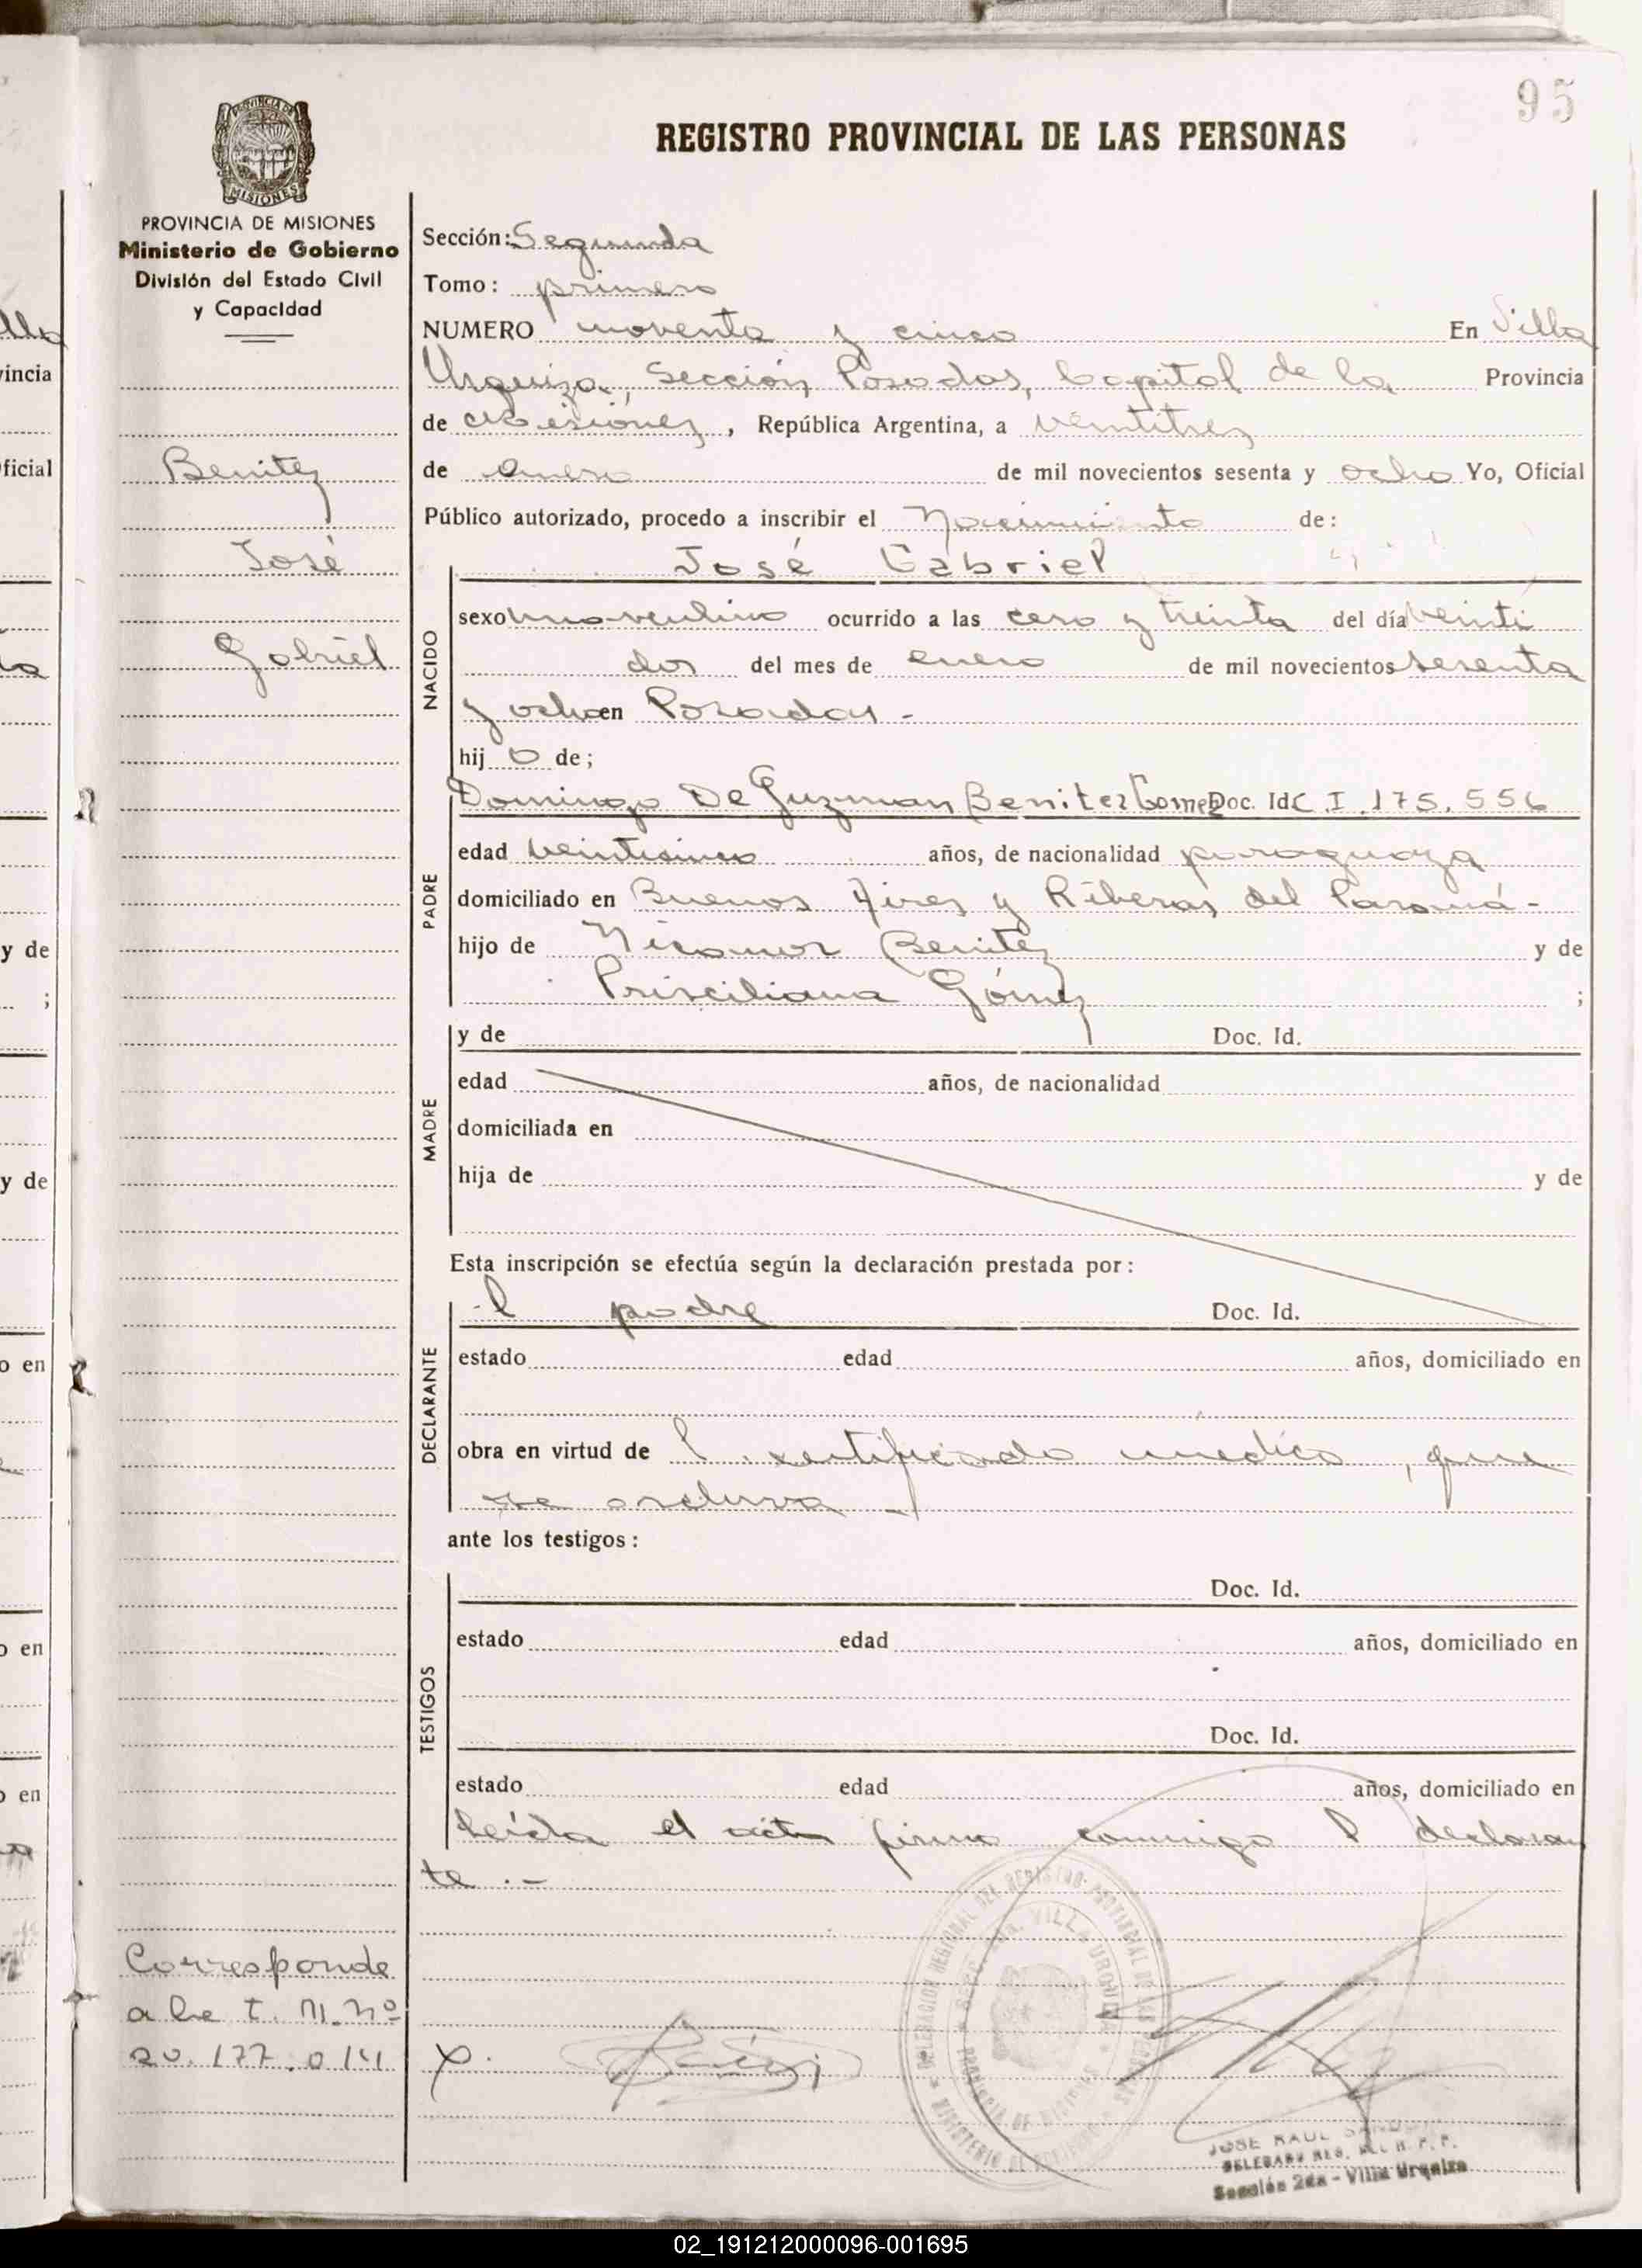 95
REGISTRO PROVINCIAL DE LAS PERSONAS
MISIONES
PROVINCIA DE MISIONES
Ministerio de Gobierno
División del Estado Civil
y Capacidad
Benitez
José
Gabriel
Sección: Segunda
Tomo: primero
NUMERO noventa y cinco En Villa
Urquiza, Sección, Posadas, Capital de la Provincia
de Misiones, República Argentina, a veintitres
de enero de mil novecientos sesenta y ocho Yo, Oficial
Público autorizado, procedo a inscribir el Nacimiento de:
José Gabriel
NACIDO
sexo masculino ocurrido a las cero y treinta del día veinti
dos del mes de enero de mil novecientos sesenta
y ocho en Posadas -
hij o de;
Domingo De Guzman Benitez Gomez Doc. Id C.I. 175.556
PADRE
edad veinticinco años, de nacionalidad paraguaya
domiciliado en Buenos Aires y Riberas del Paraná -
hijo de Nicanor Benitez y de
Prisciliana Gómez ;
y de Doc. Id.
MADRE
edad años, de nacionalidad
domiciliada en
hija de y de
Esta inscripción se efectúa según la declaración prestada por:
el padre Doc. Id.
DECLARANTE
estado edad años, domiciliado en
obra en virtud de l certificado medico, que
se archiva -
ante los testigos:
Doc. Id.
TESTIGOS
estado edad años, domiciliado en
Doc. Id.
estado edad años, domiciliado en
Leída el acta firma conmigo l declaran
te .-
Corresponde
a la t. M. Nº
20.177.014
X.
JOSE RAUL
DELEGADO REG. DEL R. P. P.
Sección 2da - Villa Urquiza
02_191212000096-001695